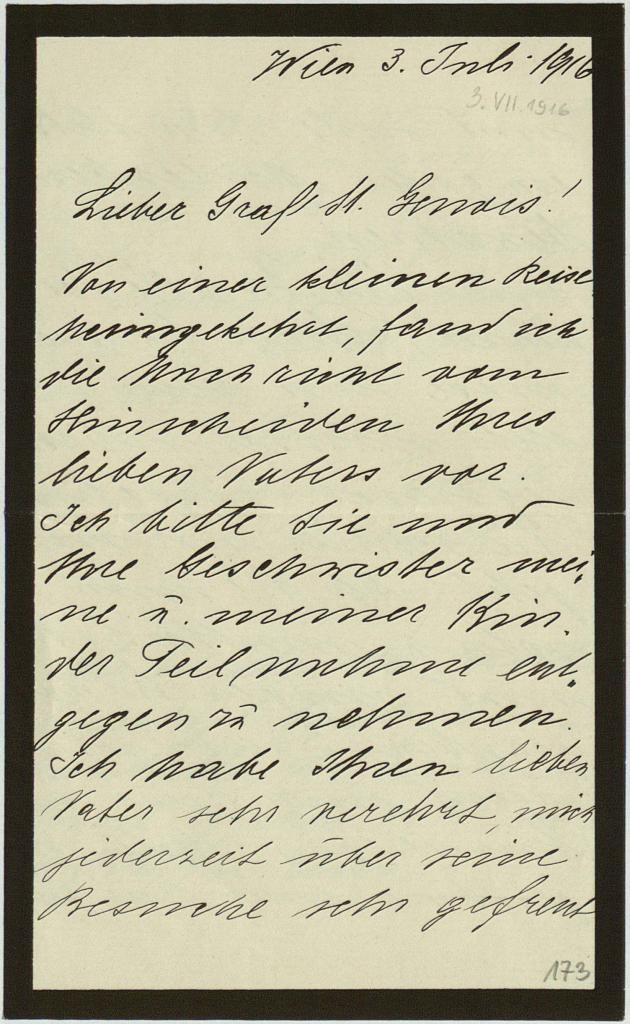 Wien 3. Juli 1916
3. VII. 1916
Lieber Graf St. Genois!
Von einer kleinen Reise
heimgekehrt, fand ich
die Nachricht vom
Hinscheiden Ihres
lieben Vaters vor.
Ich bitte Sie und
Ihre Geschwister mei-
ne u. meiner Kin-
der Teilnahme ent-
gegen zu nehmen.
Ich habe Ihren lieben
Vater sehr verehrt, mich
jederzeit über seine
Besuche sehr gefreut
173